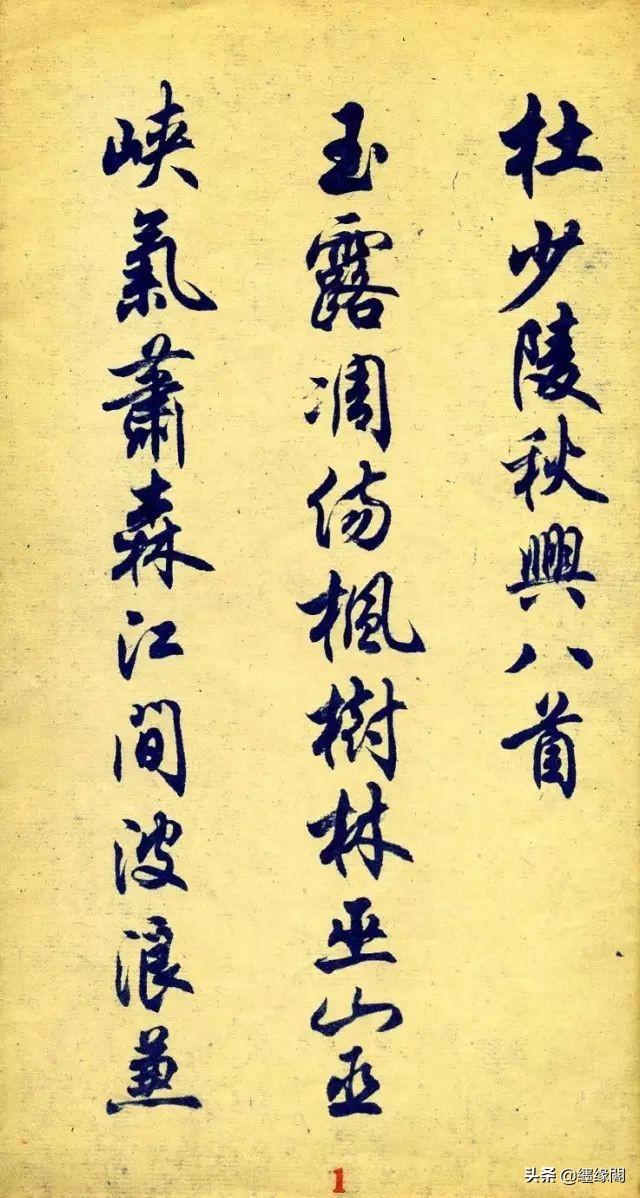 杜少陵秋興八首
玉露凋傷楓樹林巫山巫
峽氣蕭森江間波浪兼
1
头条 @纆缘閣